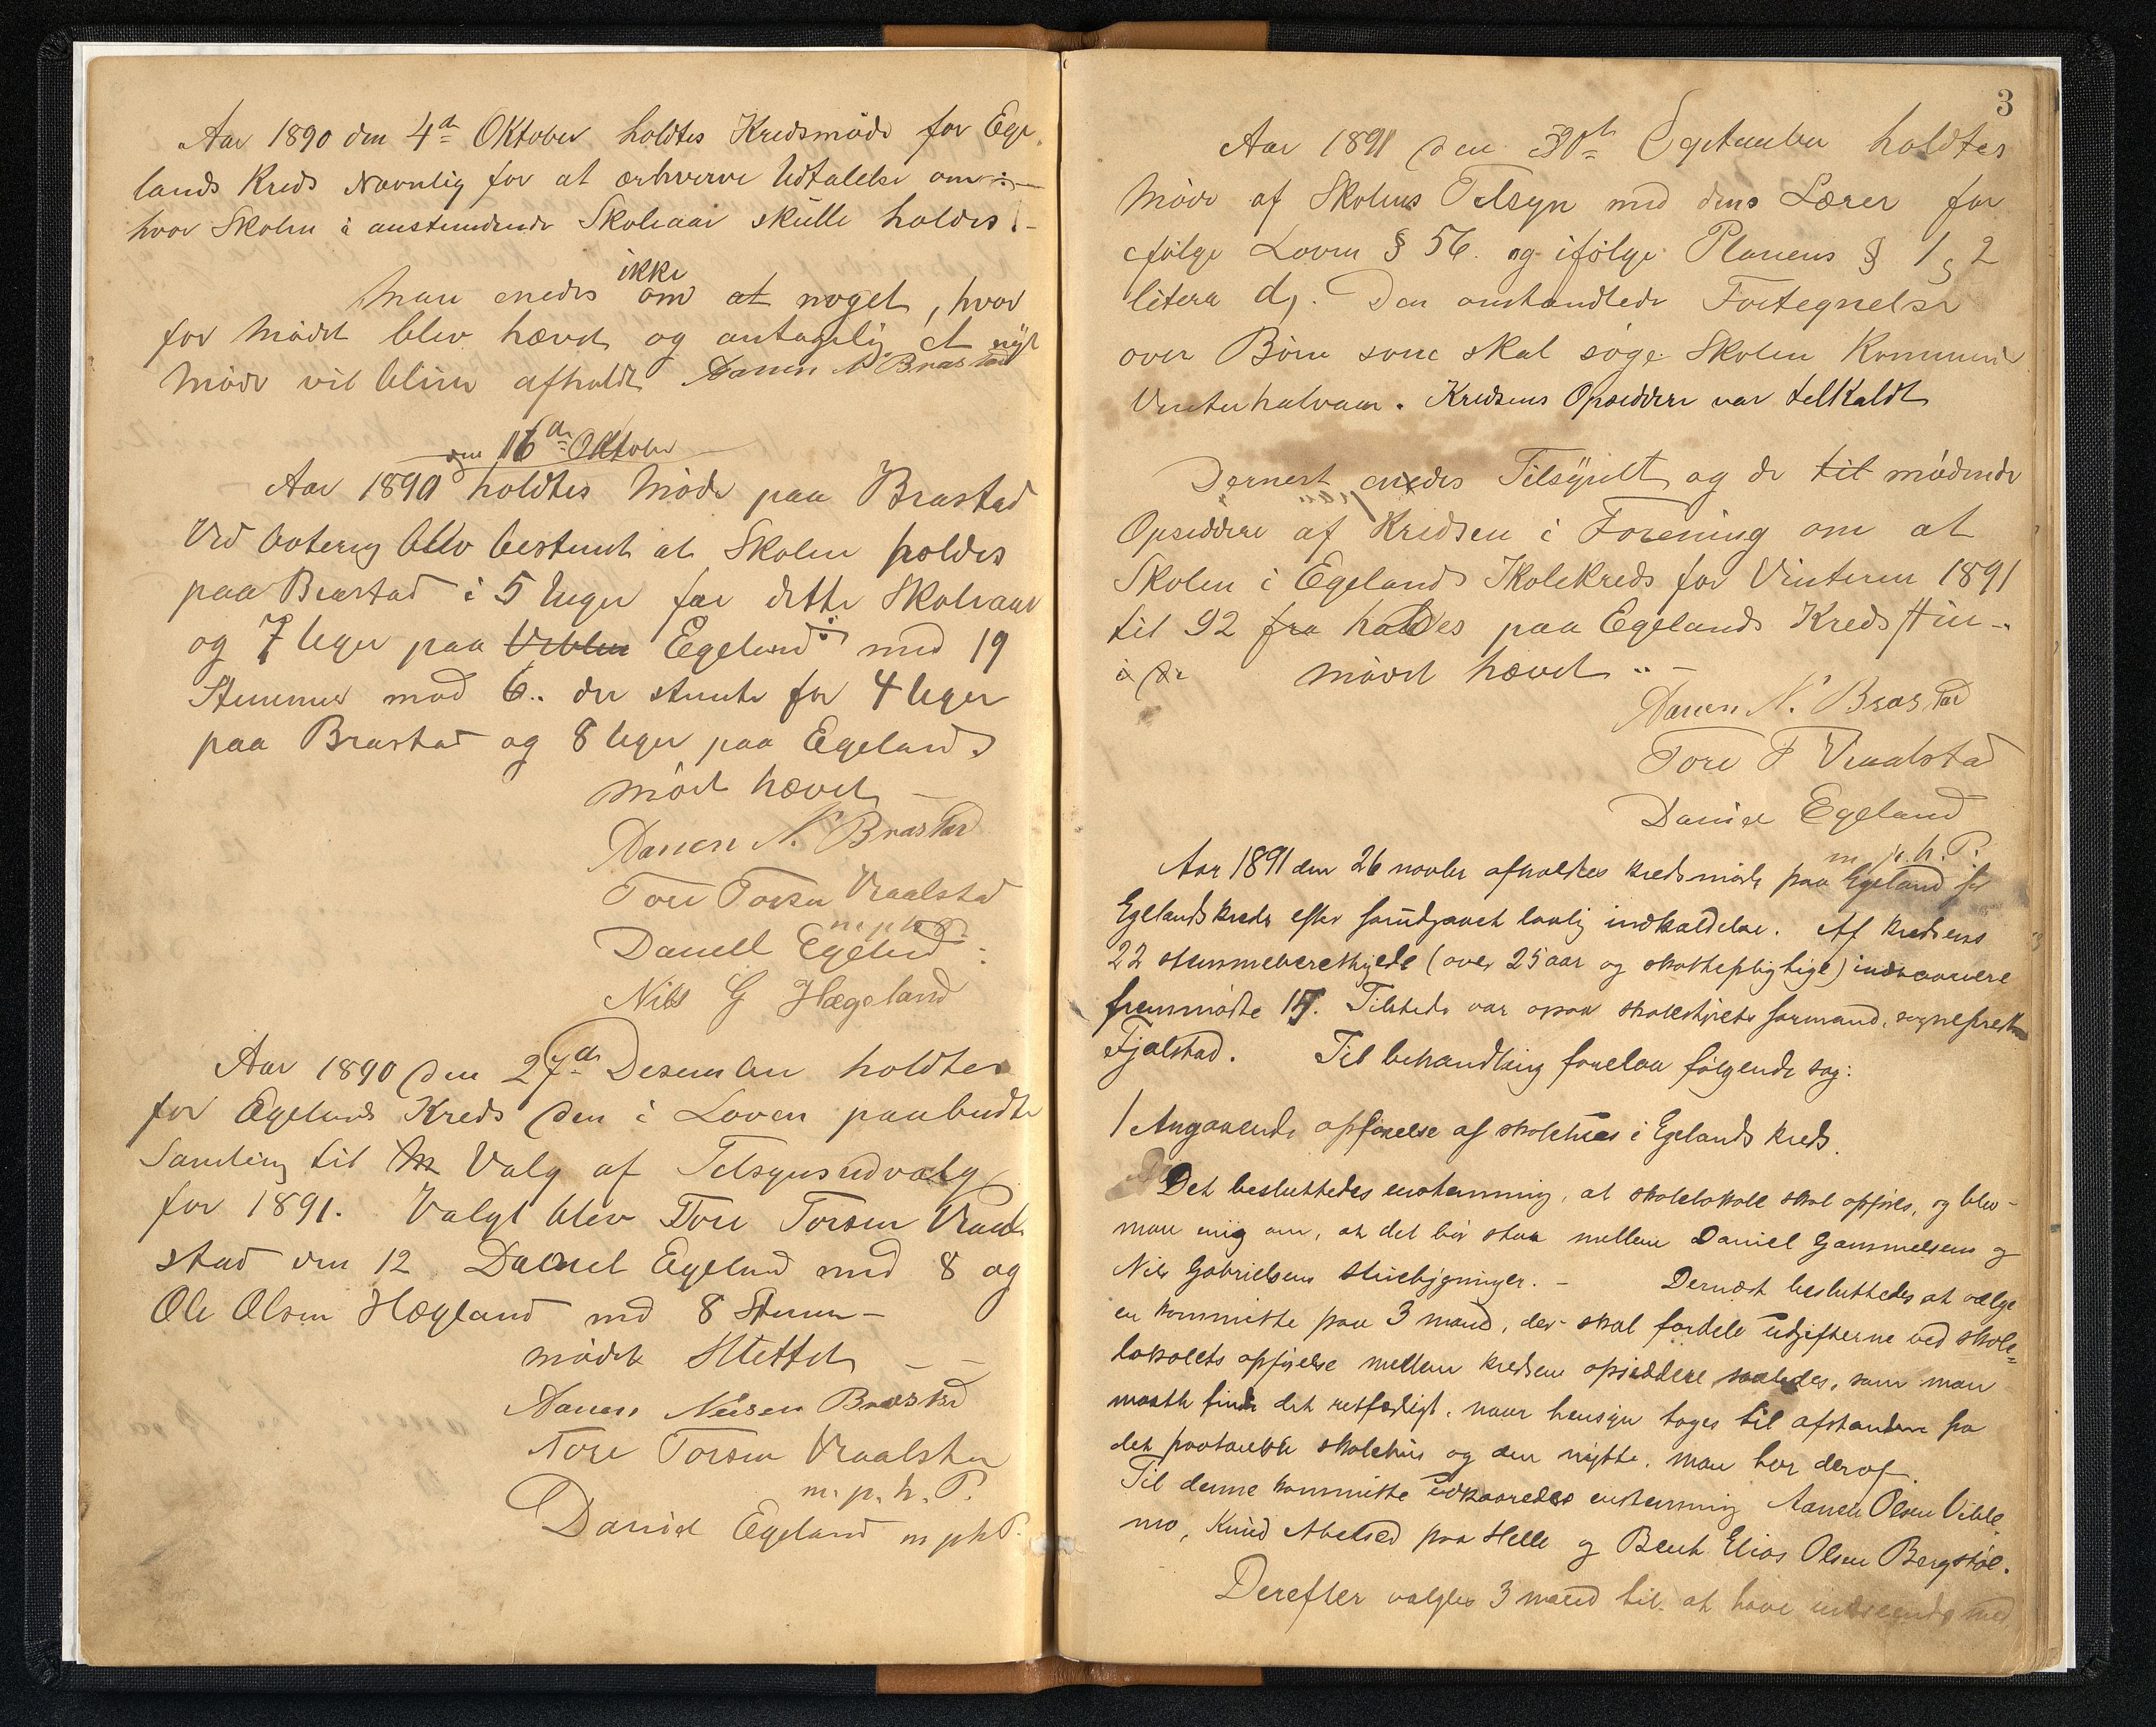 Aar 1890 den 4de Oktober holdtes Kredsmöde for Ege
lands Kreds Navnlig for at erhverve Udtalelse om :-
hvor Skolen i anstundende Skoleaar skulle holdes.-
ikke
Man enedes om at noget, hvor
for Mödet blev hævet og antagelig et nyt
Möde vil blive afholdt Aanen N Brastad
den 16de Oktober
Aar 1890 holdtes Möde paa Brastad
Ved Votering blev bestemt at Skolen holdes
paa Brastad i 5 Uger for dette Skoleaar
og 7 Uger paa Egeland med 19
Stemmer mod 6.. der stemte for 4 Uger
paa Brastad og 8 Uger paa Egeland.
Mödet hævet -
Aanen N. Brastad
Tore Torsen Vraalstad
m p h P
Daniel Egeland
Nils G Hægeland
Aar 1890 den 27de Desember holdtes
for Egelands Kreds den i Loven paabudte
Samling til Valg af Tilsynsudvalg
for 1891. Valgt blev Tore Torsen Vraal
stad 12 Daniel Egeland med 8 og
Ole Olsen Hægland med 8 Stem -
mödet Slettet - -
Aanen Nilsen Brastad
Tore Torsen Vraalstad
m. p. h. P.
Daniel Egeland m p h P.
3
Aar 1891 den 30te September holdtes
Möde af Skolens Tilsyn med dens Lærer for
efölge Loven § 56. og ifölge Planens § 1, 2
litera d). Den omhandlede Fortegnelse
over Börn som skal söge Skolen Kommende
Vinterhalvaar. Kredsens Opsiddere var tilkaldt
Dernest enedes Tilsynet og de til mödende
Opsiddere af Kredsen i Forening om at
Skolen i Egelands Skolekreds for Vinteren 1891
til 92 fra holdes paa Egelands Kredsstue -
mödet hævet .. -
Aanen N. Brastad
Tore T Vraalstad
Daniel Egeland
m. p. h. P.
Aar 1891 den 26 novbr afholdtes kredsmöde paa Egeland for
Egelands kreds efter forudgaaet lovlig indkaldelse. Af kredsens
22 stemmeberettigede (over 25 aar og skattepligtige) indvaanere
fremmödte 17. Tilstede var ogsaa skolestyrets formand, sogneprest
Fjalstad. Til behandling forelaa følgende sag:
1 Angaaende opförelse af skolehus i Egelands kreds.
Det besluttedes enstemmig, at skolelokale skal opføres, og blev
man enig om, at det bör staa mellem Daniel Gammelsens og
Nils Gabrielsens Stuebygninger. - Dernæst besluttedes at vælge
en kommitte paa 3 mand, der skal fordele udgifterne ved skole=
lokalets opförelse mellem kredsens opsiddere saaledes, som man
maatte finde det retfærdigt, naar hensyn tages til afstanden fra
det paatænkte skolehus og den nytte, man har deraf.
Til denne kommitte udkaaredes enstemmig Aanen Olsen Vible
mo, Knud Abelsed paa Helle og Bent Elias Olsen Bergstöl.
Derefter valgtes 3 mand til at have indseende med